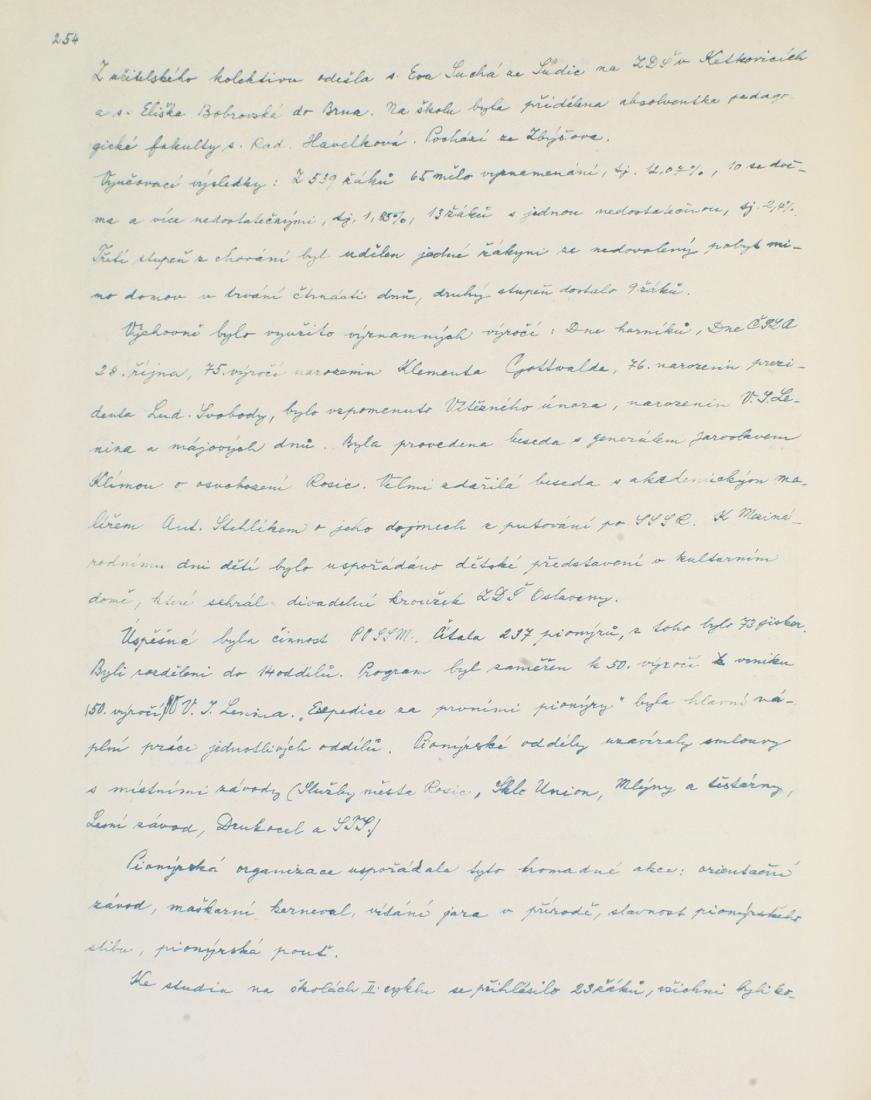 254
Z učitelského kolektivu odešla s. Eva Suchá ze Sudic na ZDŠ v Ketkovicích
a s. Eliška Bobrovská do Brna. Na školu byla přidělena absolventka pedago-
gické fakulty s. Rad. Havelková. Pochází ze Zbýšova.
Vyučovací výsledky: Z 539 žáků 65 mělo vyznamenání, tj. 12,07%, 10 se dvě-
ma a více nedostatečnými, tj. 1,85%, 13 žáků s jednou nedostatečnou, tj. 2,4%.
Třetí stupeň z chování byl udělen jedné žákyni ze nedovolený pobyt mi-
mo domov v trvání čtrnácti dnů, druhý stupeň dostalo 9 žáků.
Výchovně bylo využito významných výročí: Dne horníků, Dne ČSLA
28. října, 75. výročí narozenin Klementa Gottwalda, 76. narozenin prezi-
denta Lud. Svobody, bylo vzpomenuto Vítězného února, narozenin V. I. Le-
nina a májových dnů. Byla provedena beseda s generálem Jaroslavem
Klímou o osvobození Rosic. Velmi zdařilá beseda s akademickým ma-
lířem Ant. Stehlíkem o jeho dojmech z putování po SSSR. K Meziná-
rodnímu dni dětí bylo uspořádáno dětské představení v kulturním
domě, které sehrál divadelní kroužek ZDŠ Oslavany.
Úspěšná byla činnost PO SSM. Čítala 297 pionýrů, z toho bylo 73 jisker.
Byli rozděleni do 14 oddílů. Program byl zaměřen k 50. výročí vzniku
(50. výročí) V. I. Lenina. „Expedice za prvními pionýry" byla hlavní ná-
plní práce jednotlivých oddílů. Pionýrské oddíly uzavíraly smlouvy
s místními závody (Služby města Rosic, Sklo Union, Mlýny a těstárny,
Lesní závod, Drukocel a STS.)
Pionýrská organizace uspořádala tyto hromadné akce: orientační
závod, maškarní kerneval, vítání jara v přírodě, slavnost pionýrského
slibu, pionýrská pouť.
Ke studiu na školách II. cyklu se přihlásilo 23 žáků, všichni byli ko-